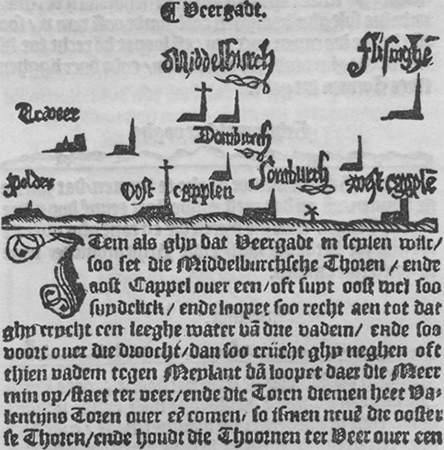 ¶ Veergadt.
Middelburch
flisinghē
Traveer
Domburch
Polder
Oost capplen
Somburch
west capple
ITem als ghy dat Veergadt in seylen wilt/
soo set die Middelburchsche Thoren / ende
aost Cappel over een / oft suyt oost wel soo
suydelick / ende loopet soo recht aen tot dat
ghy crycht een leeghe water vā drie vadem / ende soo
voort over die droocht / dan soo crücht ghy neghen oft
thien vadem tegen Meylant dā loopet daer die Meer
min op / staet ter veer / ende die Toren diemen heet Va-
lentijns Toren over eē comen / so ismen neuē die ooster
se Thoren / ende houdt die Thoornen ter Veer over een